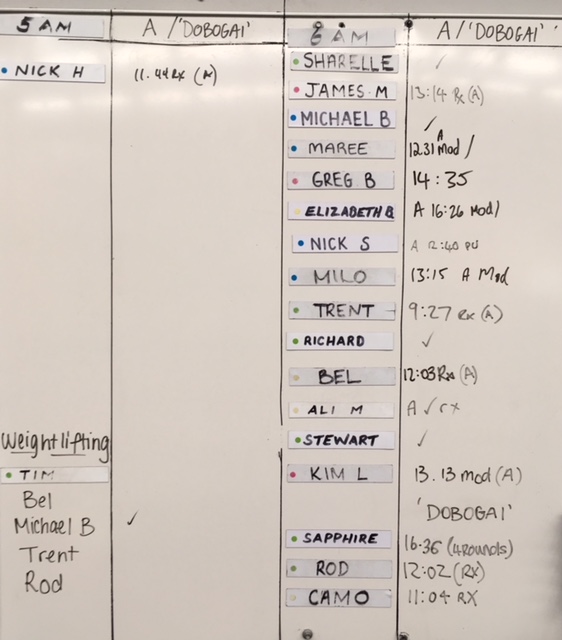 5 AM A / 'DOBOGAI'
NICK H 11.44 RX (A)
Weightlifting
TIM
Bel
Michael B ✓
Trent
Rod
AM A / 'DOBOGAI'
SHARELLE ✓
JAMES M 13:14 Rx (A)
MICHAEL B ✓
MAREE 12.31 A Mod /
GREG B 14:35
ELIZABETH B A 16:26 Mod/
NICK S A 12:40 PU
MILO 13:15 A Mod
TRENT 9:27 Rx (A)
RICHARD ✓
BEL 12:03 Rx (A)
ALI M A ✓ rx
STEWART ✓
KIM L 13.13 mod (A)
'DOBOGAI'
SAPPHIRE 16.36 (4 ROUNDS)
ROD 12:02 (RX)
CAMO 11:04 RX